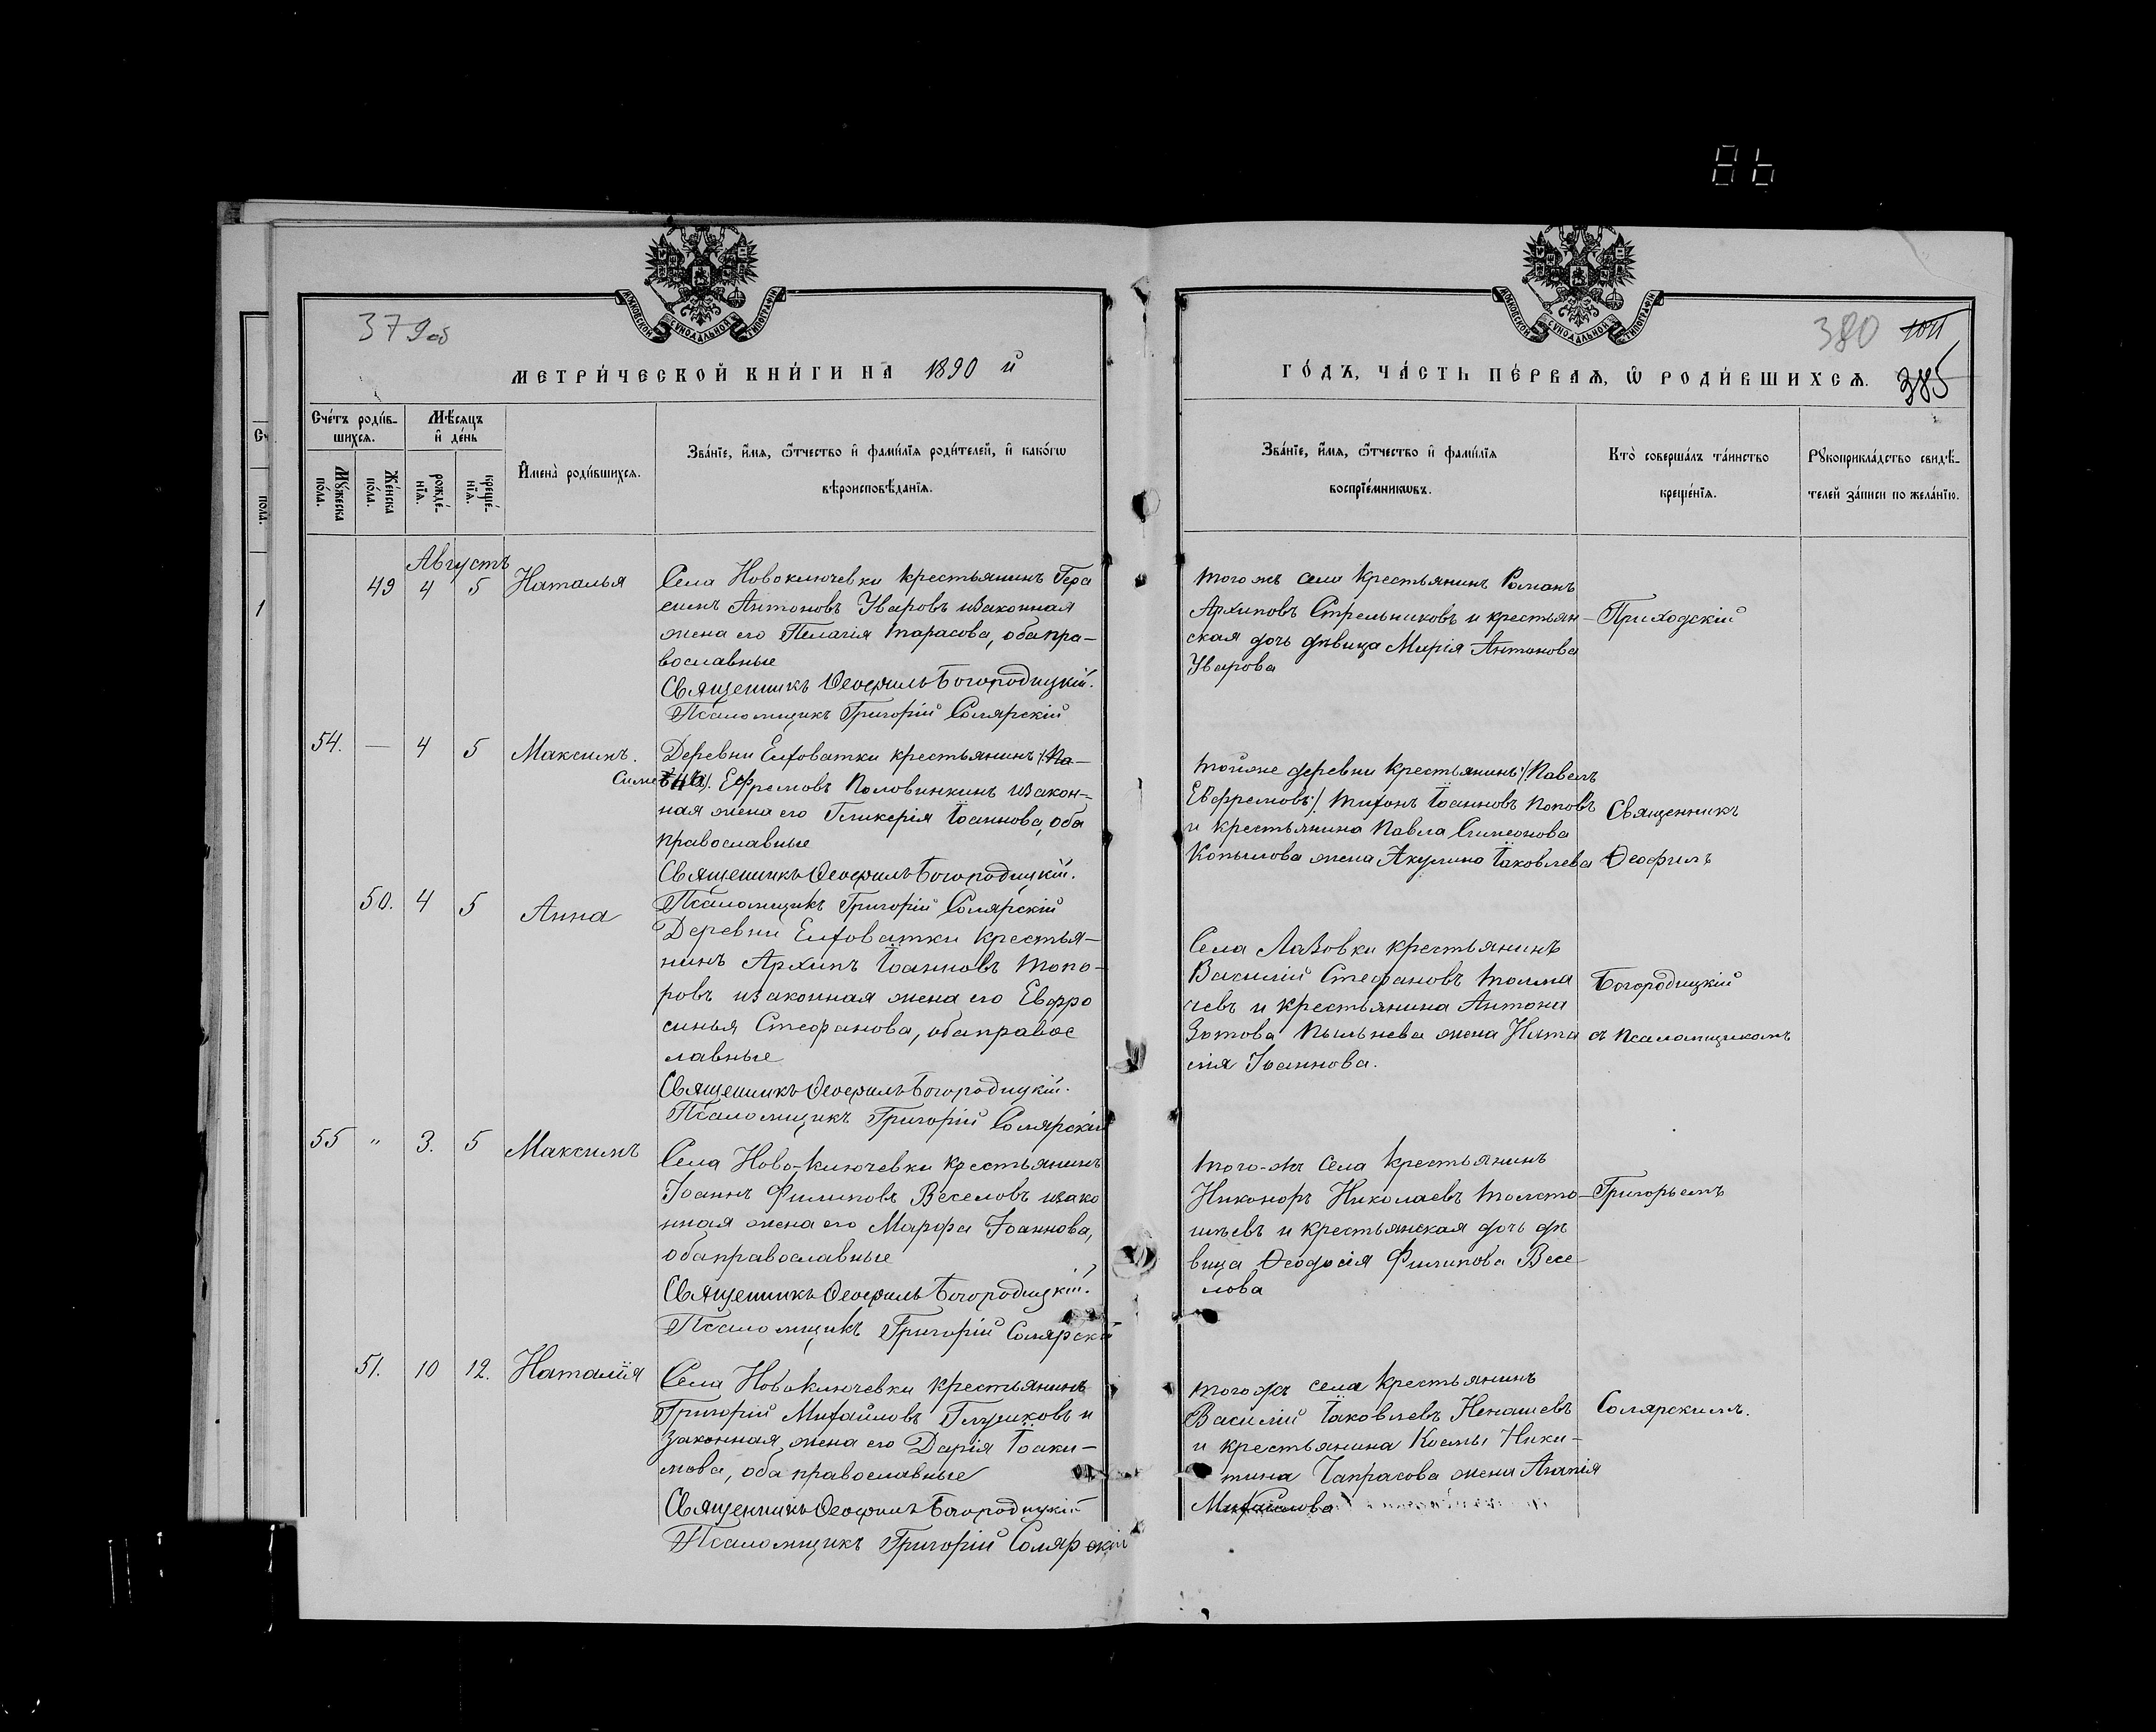 379об
МЕТРИ́ЧЕСКОЙ КНИ́ГИ НА 1890 й
Сче́тъ роди́в-
шихсѧ.
Мѣ́сѧцъ
и҆ де́нь
Мꙋ́жеска
по́ла.
Же́нска
по́ла.
рожде́-
нїѧ.
креще́-
нїѧ.
И҆мена̀ роди́вшихсѧ.
Зва́нїе, и҆́мѧ, ѻ҆́тчество и҆ фами́лїѧ роди́телей, и҆ како́гѡ
вѣроисповѣ́данїѧ.
Августъ
49 4 5 Наталья
Села Новоключевки крестьянинъ Гера
симъ Антоновъ Уваровъ изаконная
жена его Пелагія Тарасова, оба пра-
вославные
Священникъ Ѳеофилъ Богородицкій.
Псаломщикъ Григорій Солярскій
54. — 4 5 Максимъ.
Деревни Елховатки крестьянинъ /: Па-
Ефремовъ Половинкинъ изакон-
ная жена его Гликерія Іоаннова, оба
православные
Священникъ Ѳеофилъ Богородицкій.
Псаломщикъ Григорій Солярскій
50. 4 5 Анна
Деревни Елховатки крестья-
нинъ Архипъ Іоанновъ Топо-
ровъ изаконная жена его Евфро
синья Стефанова, оба правос
лавные
Священникъ Ѳеофилъ Богородицкій.
Псаломщикъ Григорій Солярскій
55 " 3. 5 Максимъ
Села Ново-Ключевки крестьянинъ
Іоаннъ Филиповъ Веселовъ изако
нная жена его Марфа Іоаннова,
оба православные
Священникъ Ѳеофилъ Богородицкій.
Псаломщикъ Григорій Солярскій
51. 10 12. Наталія
Села Новоключевки крестьянинъ
Григорій Михайловъ Глушковъ и
законная жена его Дарія Іоаки-
мова, оба православные
Священникъ Ѳеофилъ Богородицкій
Псаломщикъ Григорій Солярскій
380
385
ГО́ДЪ, ЧА́СТЬ ПЕ́РВАѦ, Ѽ РОДИ́ВШИХСѦ.
Зва́нїе, и҆́мѧ, ѻ҆́тчество и҆ фами́лїѧ
воспрїе́мникѡвъ.
Кто̀ соверша́лъ та́инство
креще́нїѧ.
Рꙋкоприкла́дство свидѣ́-
телей за́писи по жела́нїю.
Того жъ села крестьянинъ Романъ
Архиповъ Стрельниковъ и крестьян-
ская дочь дѣвица Марія Антонова
Уварова
Тойже деревни крестьянинъ /: Павелъ
Евфремовъ :/ Тихонъ Іоанновъ Поповъ
и крестьянина Павла Симеонова
Копылова жена Акулина Іаковлева
Села Лазовки крестьянинъ
Василій Стефановъ Толма
чевъ и крестьянина Антона
Зотова Пыльнева жена Ната
лія Іоаннова.
Того-жъ села крестьянинъ
Никоноръ Николаевъ Толсто-
шѣевъ и крестьянская дочь дѣ
вица Ѳеодосія Филипова Весе-
лова
Того жъ села крестьянинъ
Василій Іаковлевъ Ненашевъ
и крестьянина Космы Ники-
тина Чапрасова жена Агапія
Михайлова
Приходскій
Священникъ
Ѳеофилъ
Богородицкій
съ псаломщикомъ
Григорьемъ
Солярскимъ.